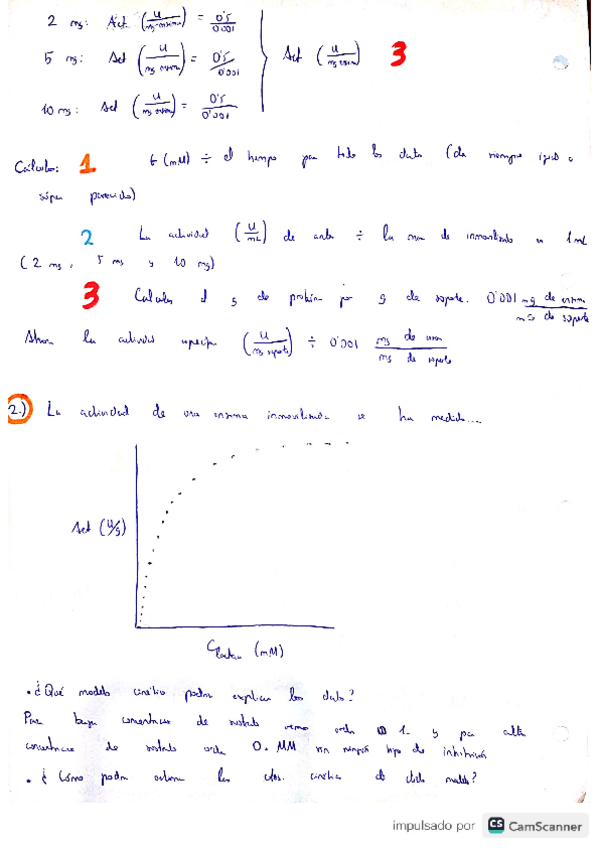 2 mg: Act (U/mg enzima) = 0'5/0'001
5 mg: Act (U/mg enzima) = 0'5/0'001 Act (U/mg enzima) 3
10 mg: Act (U/mg enzima) = 0'5/0'001
Cálculos: 1 G (mM) ÷ el tiempo para todos los datos (da siempre igual o
súper parecido)
2 La actividad (U/mL) de antes ÷ la de inmovilizado en 1 mL
(2 mg, 5 mg y 10 mg)
3 Calculas el g de proteína por g de soporte. 0'001 mg de enzima/mg de soporte
Ahora la actividad específica (U/mg soporte) ÷ 0'001 mg de enzima/mg de soporte
2.) La actividad de una enzima inmovilizada se ha medido....
Act (U/g)
C lactosa (mM)
· ¿Qué modelo cinético podría explicar los datos?
Para bajas concentraciones de sustrato vemos orden 1 y para altas
concentraciones de sustrato orden 0. MM sin ningún tipo de inhibición
· ¿Cómo podría obtener las ctes. cinéticas de dicho modelo?
impulsado por CS CamScanner